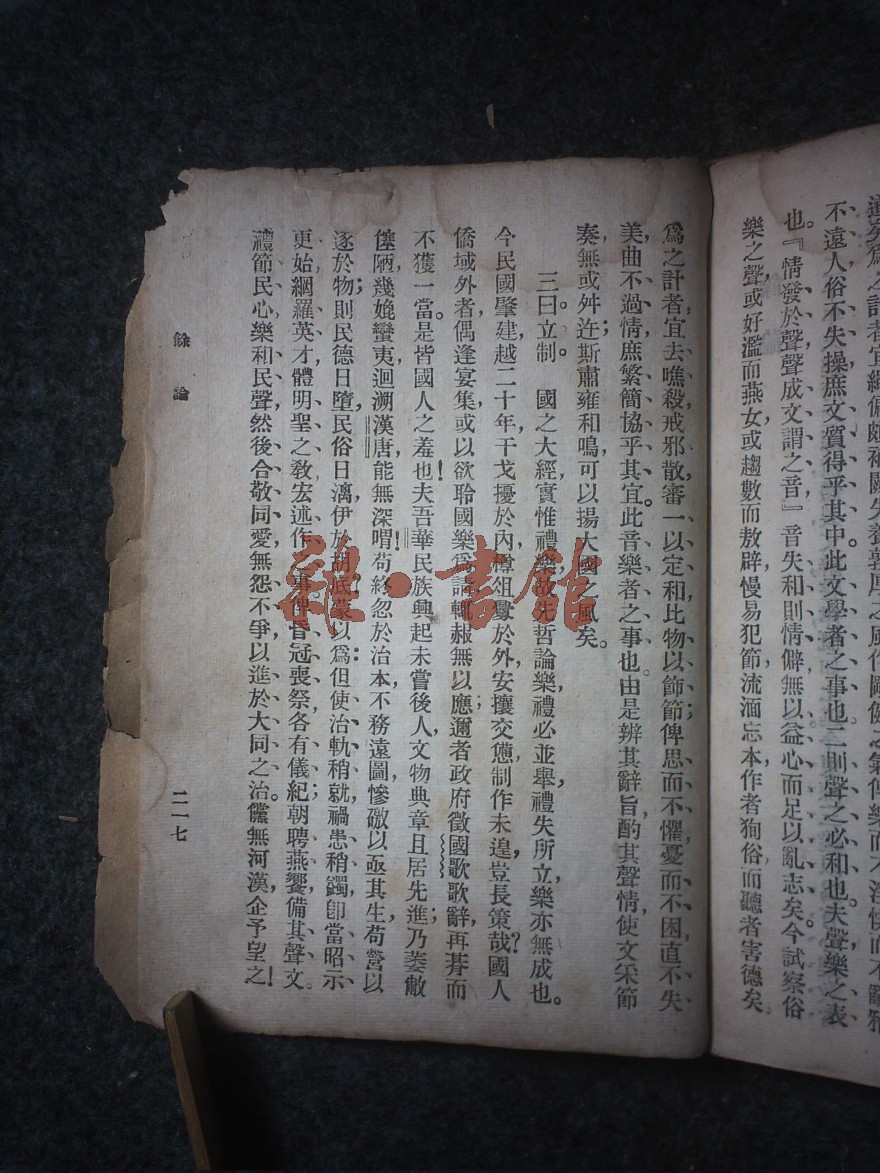 不遠人俗不失操庶文質得乎其中此文學者之事也二則聲之必和也夫聲樂之表
也。『情發於聲聲成文謂之音』音失和則情僻無以益心而足以亂志矣今試察俗
樂之聲或好濫而燕女或趨數而敖辟慢易犯節流湎忘本作者狥俗而聽者害德矣
爲之計者宜去噍殺戒邪散審一以定和比物以飾節俾思而不懼憂而不困直不失
美曲不過情庶繁簡協乎其宜。此音樂者之事也。由是辨其辭旨酌其聲情使文采節
奏無或舛迕斯肅雍和鳴可以揚大國之風矣。
三曰立制。 國之大經實惟禮樂故先哲論樂禮必並舉禮失所立樂亦無成也。
今民國肇建越二十年干戈擾於內樽俎釁於外安攘交憊制作未遑豈長策哉?國人
僑域外者偶逢宴集或以欲聆國樂爲請輒赧無以應邇者政府徵國歌歌辭再朞而
不獲一當。是皆國人之羞也!夫吾華民族興起未嘗後人文物典章且居先進;乃萎敝
僿陋幾媲蠻夷迴溯漢唐能無深喟!苟終忽於治本不務遠圖慘礉以亟其生苟營以
逐於物;則民德日墮民俗日漓伊於胡底蒙以爲:但使治軌稍就禍患稍蠲卽當昭示
更始網羅英才體明聖之敎宏述作之事俾昏冠喪祭各有儀紀;朝聘燕饗備其聲文。
禮節民心樂和民聲然後合敬同愛無怨不爭以進於大同之治。儻無河漢企予望之!
餘論
二一七
雜·書館